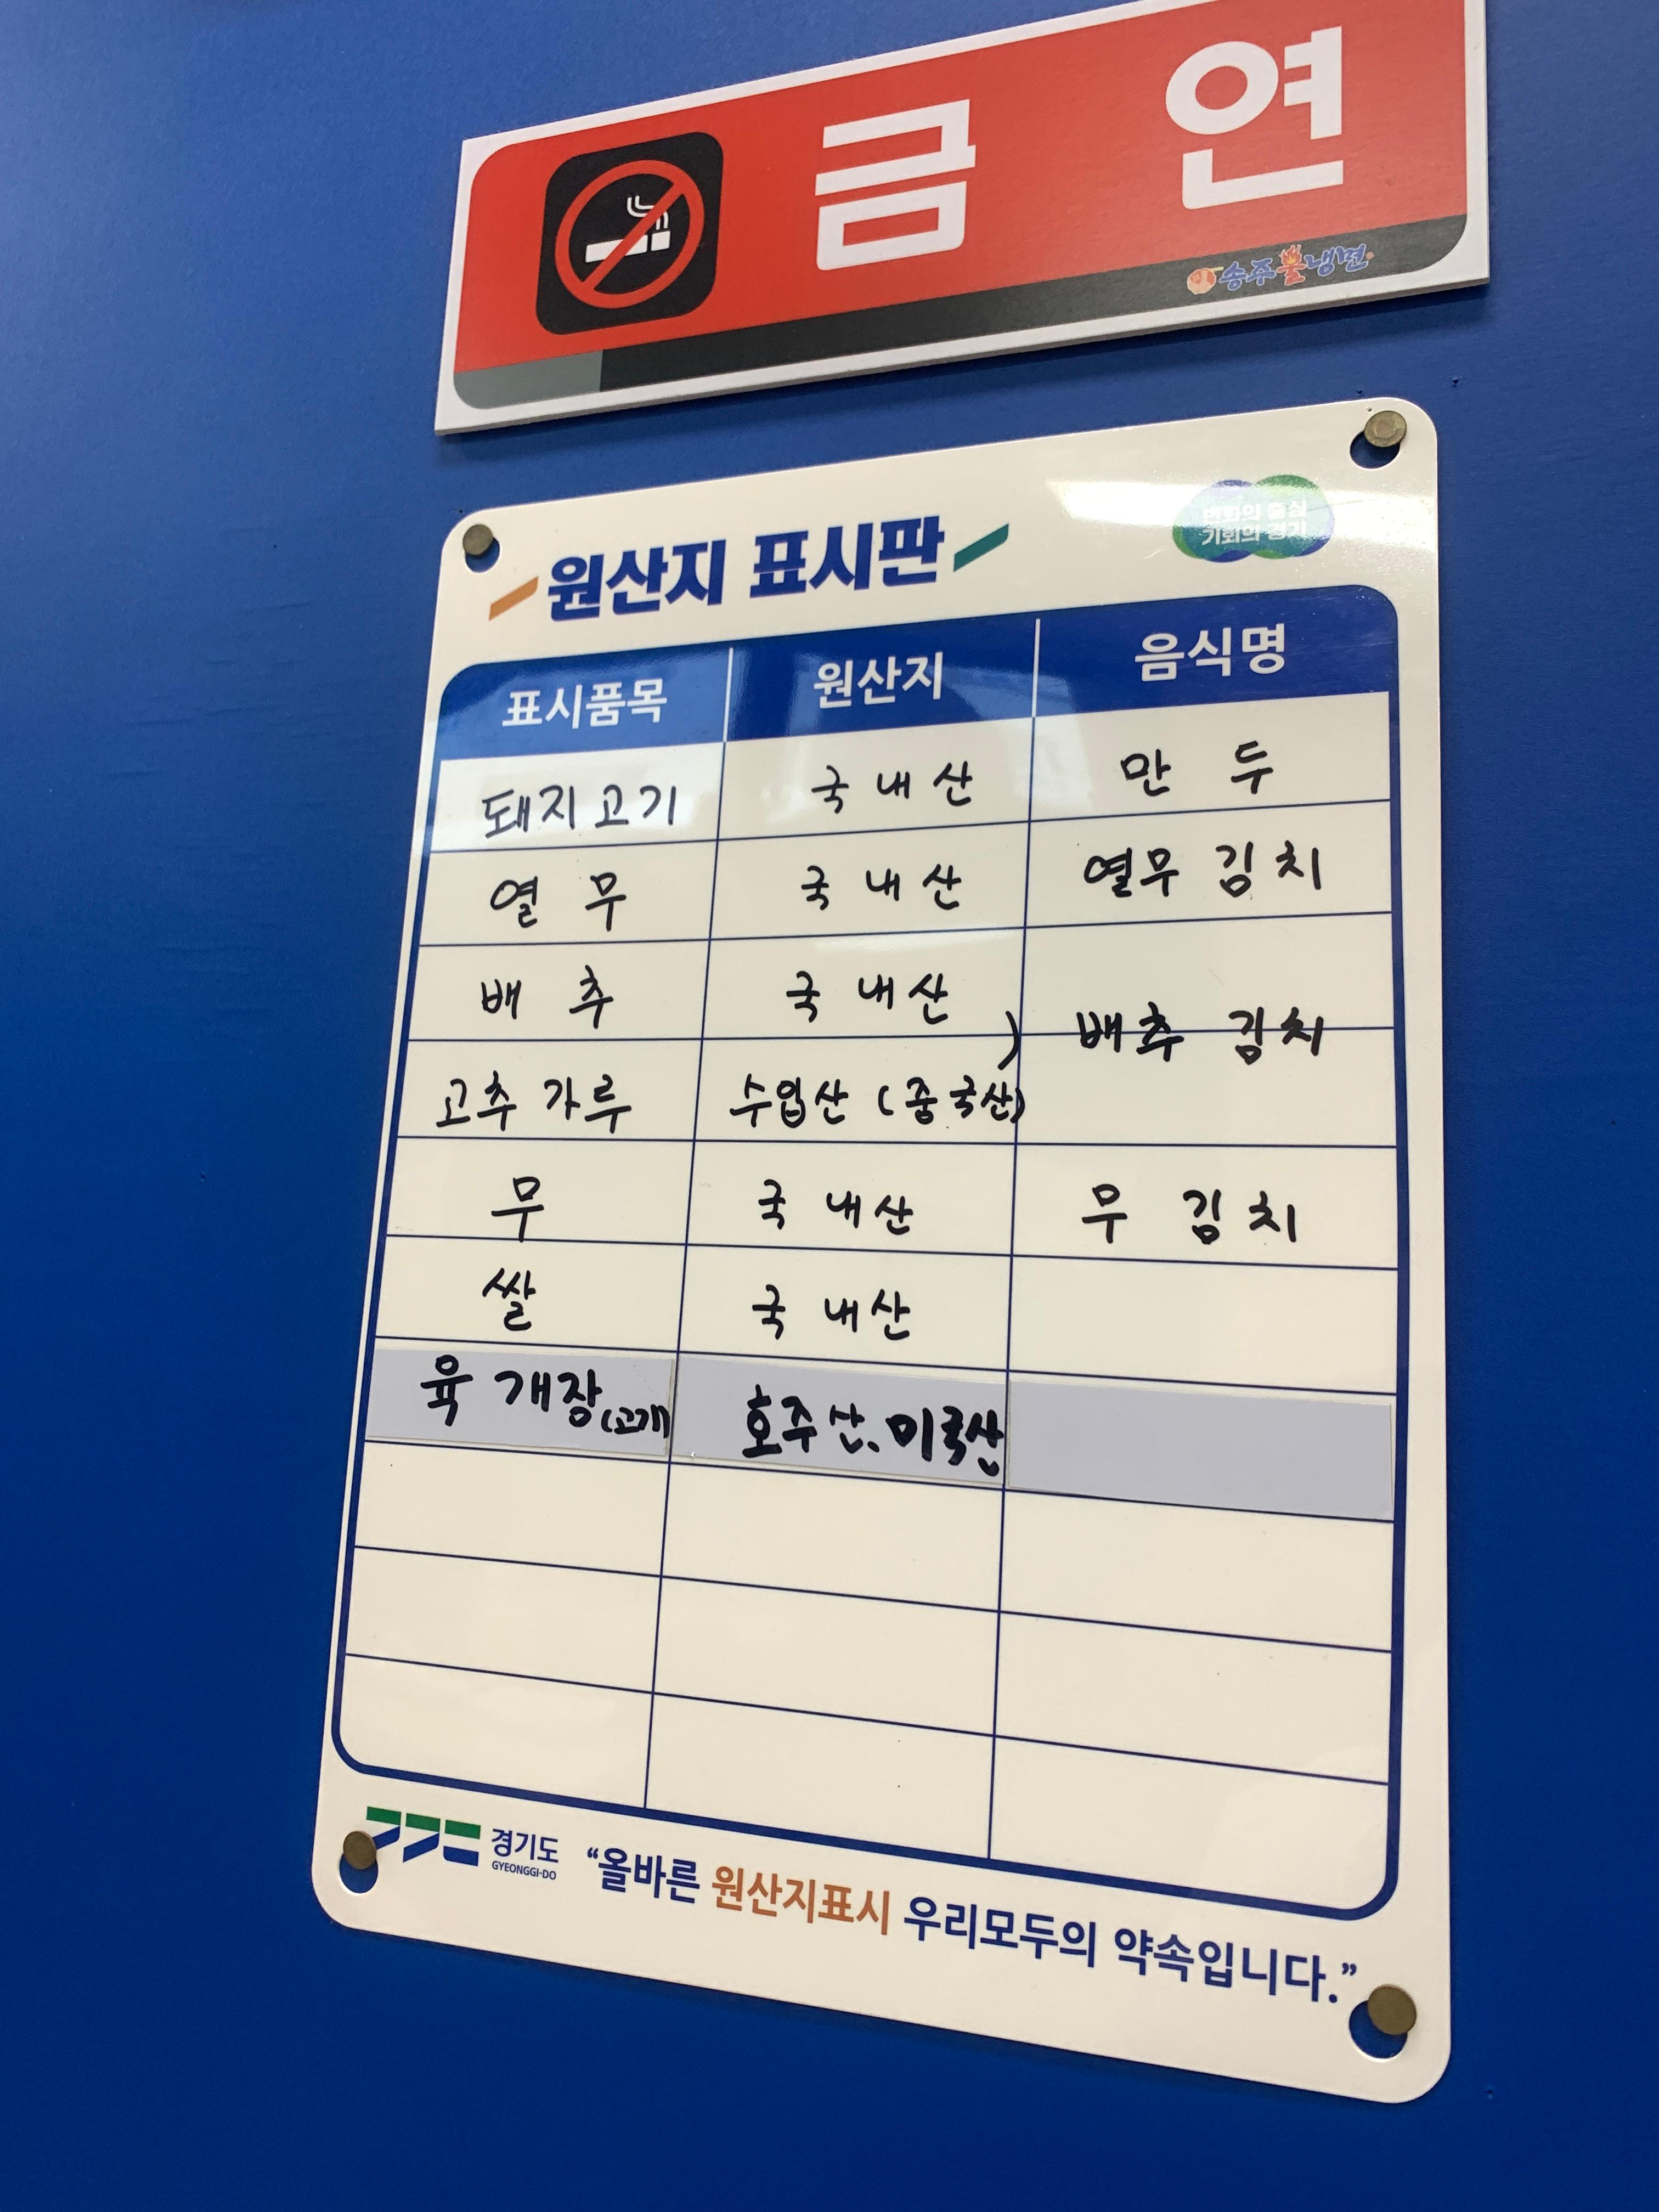 금 연
송주불냉면
원산지 표시판
변화의 중심
기회의 경기
표시품목 원산지 음식명
돼지고기 국내산 만두
열무 국내산 열무 김치
배추 국내산
) 배추 김치
고추가루 수입산 (중국산)
무 국내산 무 김치
쌀 국내산
육개장(고기) 호주산, 미국산
경기도
GYEONGGI-DO
“올바른 원산지표시 우리모두의 약속입니다.”